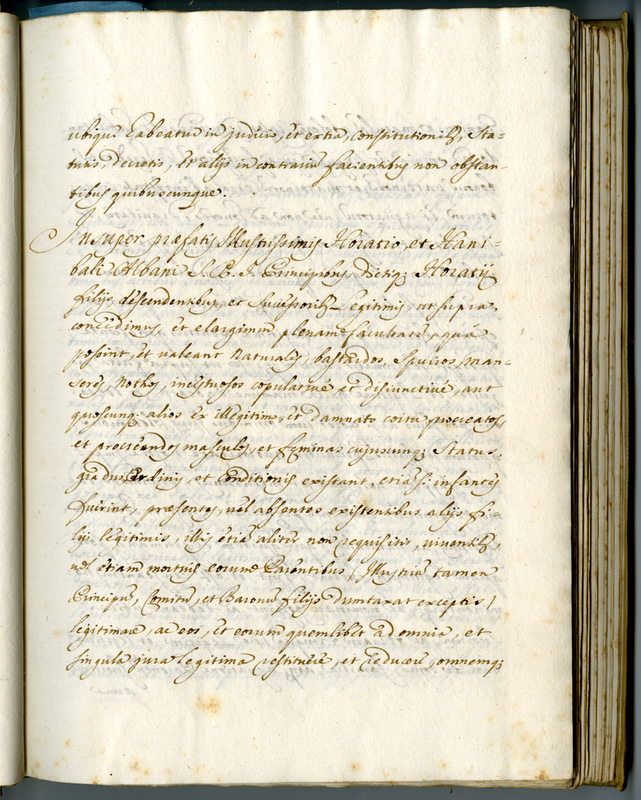 ubiqué habeatur in judicio, et extra, constitutionib3, Sta=
tutis, decretis, et alijs in contrariũ facientib3 non obstan=
tibus quibuscunque.
Insuper præfatis Illustrissimis Horatio, et Hani=
bali Albani S. R. I. Principibus, Dictiq3 Horatij
filijs, descendentibus, et Successorib3 legitimis, ut supra
concedimus, et elargimur plenam facultatẽ, quã
possint, et valeant Naturales, bastardos, Spurios, Man=
seres, Nothos, incestuosos copulativé et disiunctivé, aut
quoscunq3 alios ex illegitimo, et damnato coitu procreatos,
et procreandos masculos, et fęminas cujuscunq3 Status,
gradus, Ordinis, et Conditionis existant, etiã si infantes
fuerint, præsentes, vel absentes existentibus alijs fi=
lijs legitimis, illis etiã aliter non requisitis, viventib3,
vel etiam mortuis eorum Parentibus / Illustriũ tamen
Principũ, Comitũ, et Baronũ filijs dumtaxat exceptis /
legitimare, ac eos, et eorum quemlibet ad omnia, et
singula jura legitima restituere, et reducere, omnemq3